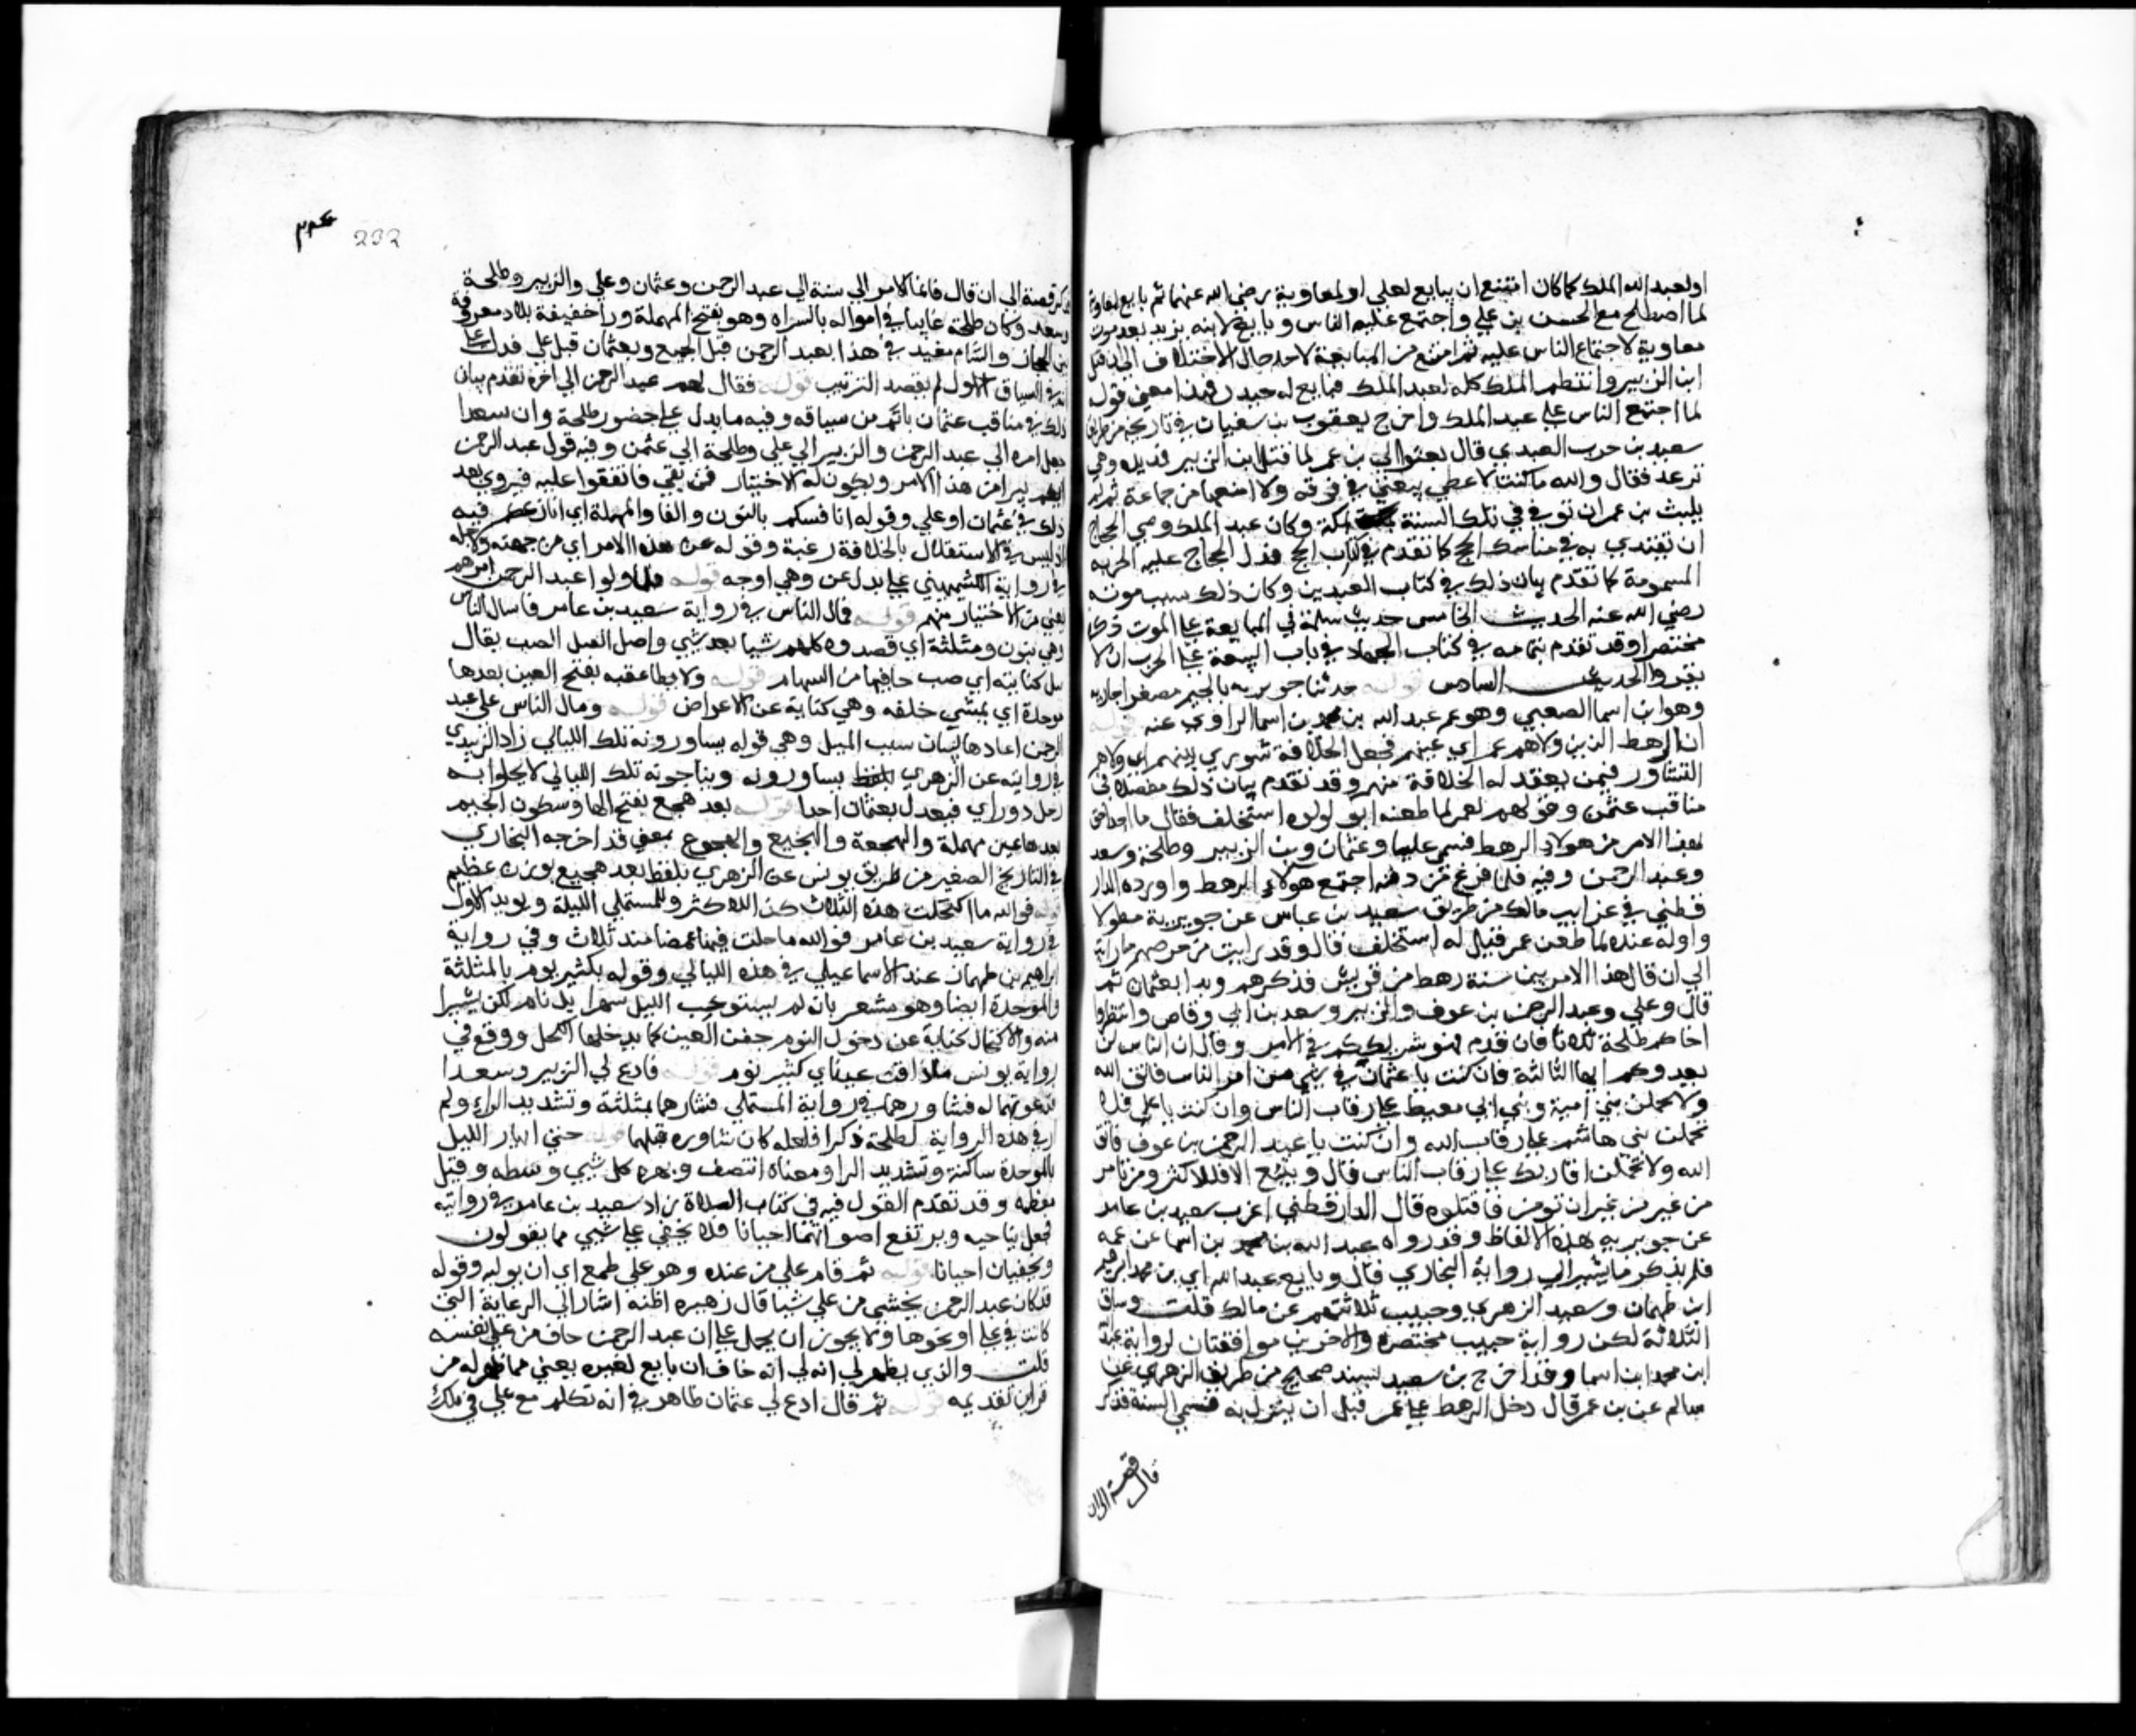 او لعبد الله الملك كما كان امتنع ان يبايع لعلي او لمعاوية رضي الله عنهما ثم بايع لمعاوية
لما اصطلح مع الحسن بن علي واجتمع عليه الناس وبايع لابنه يزيد بعد موت
معاوية لاجتماع الناس عليه ثم امتنع من المبايعة لاحد حال الاختلاف الى ان قتل
ابن الزبير وانتظم الملك كله لعبد الملك فبايع له حينئذ فهذا معنى قوله
لما اجتمع الناس على عبد الملك واخرج يعقوب بن سفيان في تاريخه من طريق
سعيد بن حرب العبدي قال بعثوا الى بن عمر لما قتل ابن الزبير فمد يده وهي
ترعد فقال والله ما كنت لاعطي بيعتي في فرقة ولا امنعها من جماعة ثم لم
يلبث بن عمر ان توفي في تلك السنة بمكة وكان عبد الملك وصى الحجاج
ان يقتدي به في مناسك الحج كما تقدم في كتاب الحج فدل الحجاج عليه الحربة
المسمومة كما تقدم بيان ذلك في كتاب العيدين وكان ذلك سبب موته
رضي الله عنه الحديث الخامس حديث سلمة في المبايعة على الموت ذكره
مختصرا وقد تقدم بتمامه في كتاب الجهاد في باب البيعة على الحرب ان لا
يفروا الحديث السادس قوله حدثنا جويرية بالجيم مصغر جارية
وهو ابن اسما الضبعي وهو عم عبد الله بن محمد بن اسما الراوي عنه قوله
ان الرهط الذين ولاهم عمر اي عينهم فجعل الخلافة شورى بينهم اي ولاهم
التشاور فيمن يعقد له الخلافة منهم وقد تقدم بيان ذلك مفصلا في
مناقب عثمن وقولهم لعمر لما طعنه ابو لولوه استخلف فقال ما احد احق
بهذا الامر من هولاء الرهط فسمى عليا وعثمان وبن الزبير وطلحة وسعد
وعبد الرحمن وفيه فلما فرغ من دفنه اجتمع هولاء الرهط واورده الدار
قطني في غرايب مالك من طريق سعيد بن عباس عن جويرية مطولا
واوله عنده لما طعن عمر قيل له استخلف قال وقد رايت من حرصهم ما رايت
الى ان قال هذا الامر بين ستة رهط من قريش فذكرهم وبدا بعثمان ثم
قال وعلي وعبد الرحمن بن عوف والزبير وسعد بن ابي وقاص وانتظروا
اخاكم طلحة ثلاثا فان قدم فهو شريككم في الامر وقال ان الناس لن
يعدوكم ايها الثلاثة فان كنت يا عثمان في شي من امر الناس فاتق الله
ولا تحملن بني امية وبني ابي معيط على رقاب الناس وان كنت يا علي فلا
تحملن بني هاشم على رقاب الله وان كنت يا عبد الرحمن بن عوف فاتق
الله ولا تحملن اقاربك على رقاب الناس قال ويتبع الاقل الاكثر ومن تامر
من غير من غير ان تومن فاقتلوه قال الدارقطني اغرب سعيد بن عامر
عن جويرية هذه الالفاظ وقد رواه عبد الله بن محمد بن اسما عن عمه
فلم يذكر ما يشير الى رواية البخاري قال وبايع عبد الله اي بن محمد ابرهيم
ابن طهمان وسعيد الزهري وحبيب ثلاثتهم عن مالك قلت وساق
الثلاثة لكن رواية حبيب مختصرة والاخرين موافقتان لرواية عبد الله
ابن محمد ابن اسما وقد اخرج بن سعيد بسند صحيح من طريق الزهري عن
سالم عن بن عمر قال دخل الرهط على عمر قبل ان ينزل به فسمى الستة فذكر
قال قصة الى ان
232
ذكر قصة الى ان قال فانما الامر الى ستة الى عبد الرحمن وعثمان وعلي والزبير وطلحة
وسعد وكان طلحة غايبا في امواله بالسراه وهو بفتح المهملة ورا خفيفة بلاد معروفة
بين الحجاز والشام مقيد في هذا بعبد الرحمن قبل الجميع وبعثمان قبل علي فدل على
انه في السياق الاول لم يقصد الترتيب قوله فقال لهم عبد الرحمن الى اخره تقدم بيان
ذلك في مناقب عثمان باتم من سياقه وفيه ما يدل على حضور طلحة وان سعدا
جعل امره الى عبد الرحمن والزبير الى علي وطلحة الى عثمن وفيه قول عبد الرحمن
ايكم يبرا من هذا الامر ويكون له الاختيار فمن بقي فاتفقوا عليه فيروى بعد
ذلك في عثمان او علي وقوله انافسكم بالنون والفا والمهملة اي انازعكم فيه
اذ ليس في الاستقلال بالخلافة رغبة وقوله عن هذا الامر اي من جهته ولاجله
في رواية الكشميهني على بدل عن وهي اوجه قوله فلما ولوا عبد الرحمن امرهم
يعني من الاختيار منهم قوله فمال الناس في رواية سعيد بن عامر فانثال الناس
وهي بنون ومثلثة اي قصدوه كلهم شيا بعد شي واصل النثل الصب يقال
نثل كنانته اي صب ما فيها من السهام قوله ولا يطا عقبه بفتح العين بعدها
موحدة اي يمشي خلفه وهي كناية عن الاعراض قوله ومال الناس على عبد
الرحمن اعادها لبيان سبب الميل وهي قوله يشاورونه تلك الليالي زاد الزبيدي
في روايته عن الزهري بلفظ يشاورونه ويناجونه تلك الليالي لا يخلوا به
رجل ذو راي فيعدل بعثمان احدا قوله بعد هجع بفتح الها وسكون الجيم
بعدها عين مهملة والهجعة والهجيع والهجوع بمعنى قد اخرجه البخاري
في التاريخ الصغير من طريق يونس عن الزهري بلفظ بعد هجيع بوزن عظيم
قوله فوالله ما اكتحلت هذه الثلاث كذا للاكثر وللمستملي الليلة ويويد الاول
في رواية سعيد بن عامر فوالله ما حلت فيها غمضا منذ ثلاث وفي رواية
ابراهيم بن طهمان عند الاسماعيلي في هذه الليالي وقوله بكثير نوم بالمثلثة
والموحدة ايضا وهو مشعر بان لم يستوعب الليل سهرا بل نام لكن يسيرا
منه والاكتحال كناية عن دخول النوم جفن العين كما يدخلها الكحل ووقع في
رواية يونس ما ذاقت عيناي كثير نوم قوله فادع لي الزبير وسعدا
فدعوتهما له فشاورهما في رواية المستملي فسارهما بمثلثة وتشديد الراء ولم
ار في هذه الرواية لطلحة ذكرا فلعله كان شاوره قبلها قوله حتى ابهار الليل
بالموحدة ساكنة وتشديد الرا ومعناه انتصف وبهرة كل شي وسطه وقيل
معظمه وقد تقدم القول فيه في كتاب الصلاة زاد سعيد بن عامر في روايته
فجعل يناجيه وترتفع اصواتهما احيانا فلا يخفى علي شي مما يقولون
ويخفيان احيانا قوله ثم قام علي من عنده وهو على طمع اي ان يوليه وقوله
قد كان عبد الرحمن يخشى من علي شيا قال زهبره اظنه اشار الى الرعاية التي
كانت في علي او نحوها ولا يجوز ان يحمل على ان عبد الرحمن خاف من علي نفسه
قلت والذي يظهر لي انه لي انه خاف ان بايع لغيره يعني مما ظهر له من
قراين تقديمه قوله ثم قال ادع لي عثمان ظاهر في انه تكلم مع علي في تلك